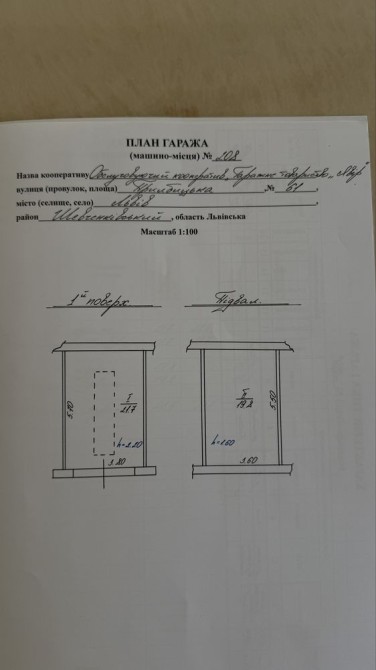 ПЛАН ГАРАЖА
(машино-місця) № 208
Назва кооперативу Обслуговуючий кооператив „Гаражне товариство
вулиця (провулок, площа) № 61,
місто (селище, село) Львів,
район Шевченківський, область Львівська
Масштаб 1:100
1й поверх Підвал
I II
21.7 19.2
5.70 5.50
h=2.20 h=1.60
3.80 3.60